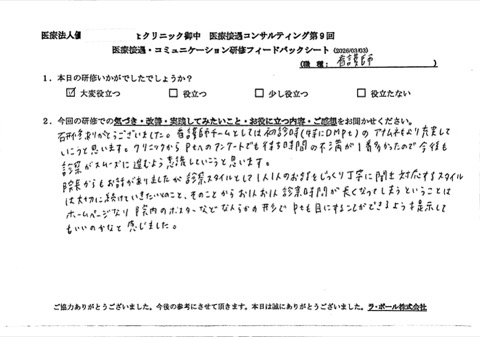 医療法人 とクリニック御中 医療接遇コンサルティング第9回
医療接遇・コミュニケーション研修フィードバックシート (2026/03/03)
(職 種: 看護師 )
1. 本日の研修いかがでしたでしょうか?
☑ 大変役立つ □ 役立つ □ 少し役立つ □ 役立たない
2. 今回の研修での気づき・改善・実践してみたいこと・お役に立つ内容・ご感想をお聞かせください。
研修ありがとうございました。看護師チームとしては初診時(特にDMPt)のアナムネをより充実して
いこうと思います。クリニックからPtへのアンケートでも待ち時間の不満が1番多かったので今後も
診察がスムーズに進むよう意識していこうと思います。
院長からもお話がありましたが診察スタイルとして1人1人のお話をじっくり丁寧に聞き対応するスタイル
は大切に続けていきたいとのこと、そのことから お1人お1人 診察時間が長くなってしまうということは
ホームページなり 院内のポスターなど なんらかの形で Ptも目にすることができるよう提示して
もいいのかなと感じました。
ご協力ありがとうございました。今後の参考にさせて頂きます。本日は誠にありがとうございました。 ラ・ポール株式会社